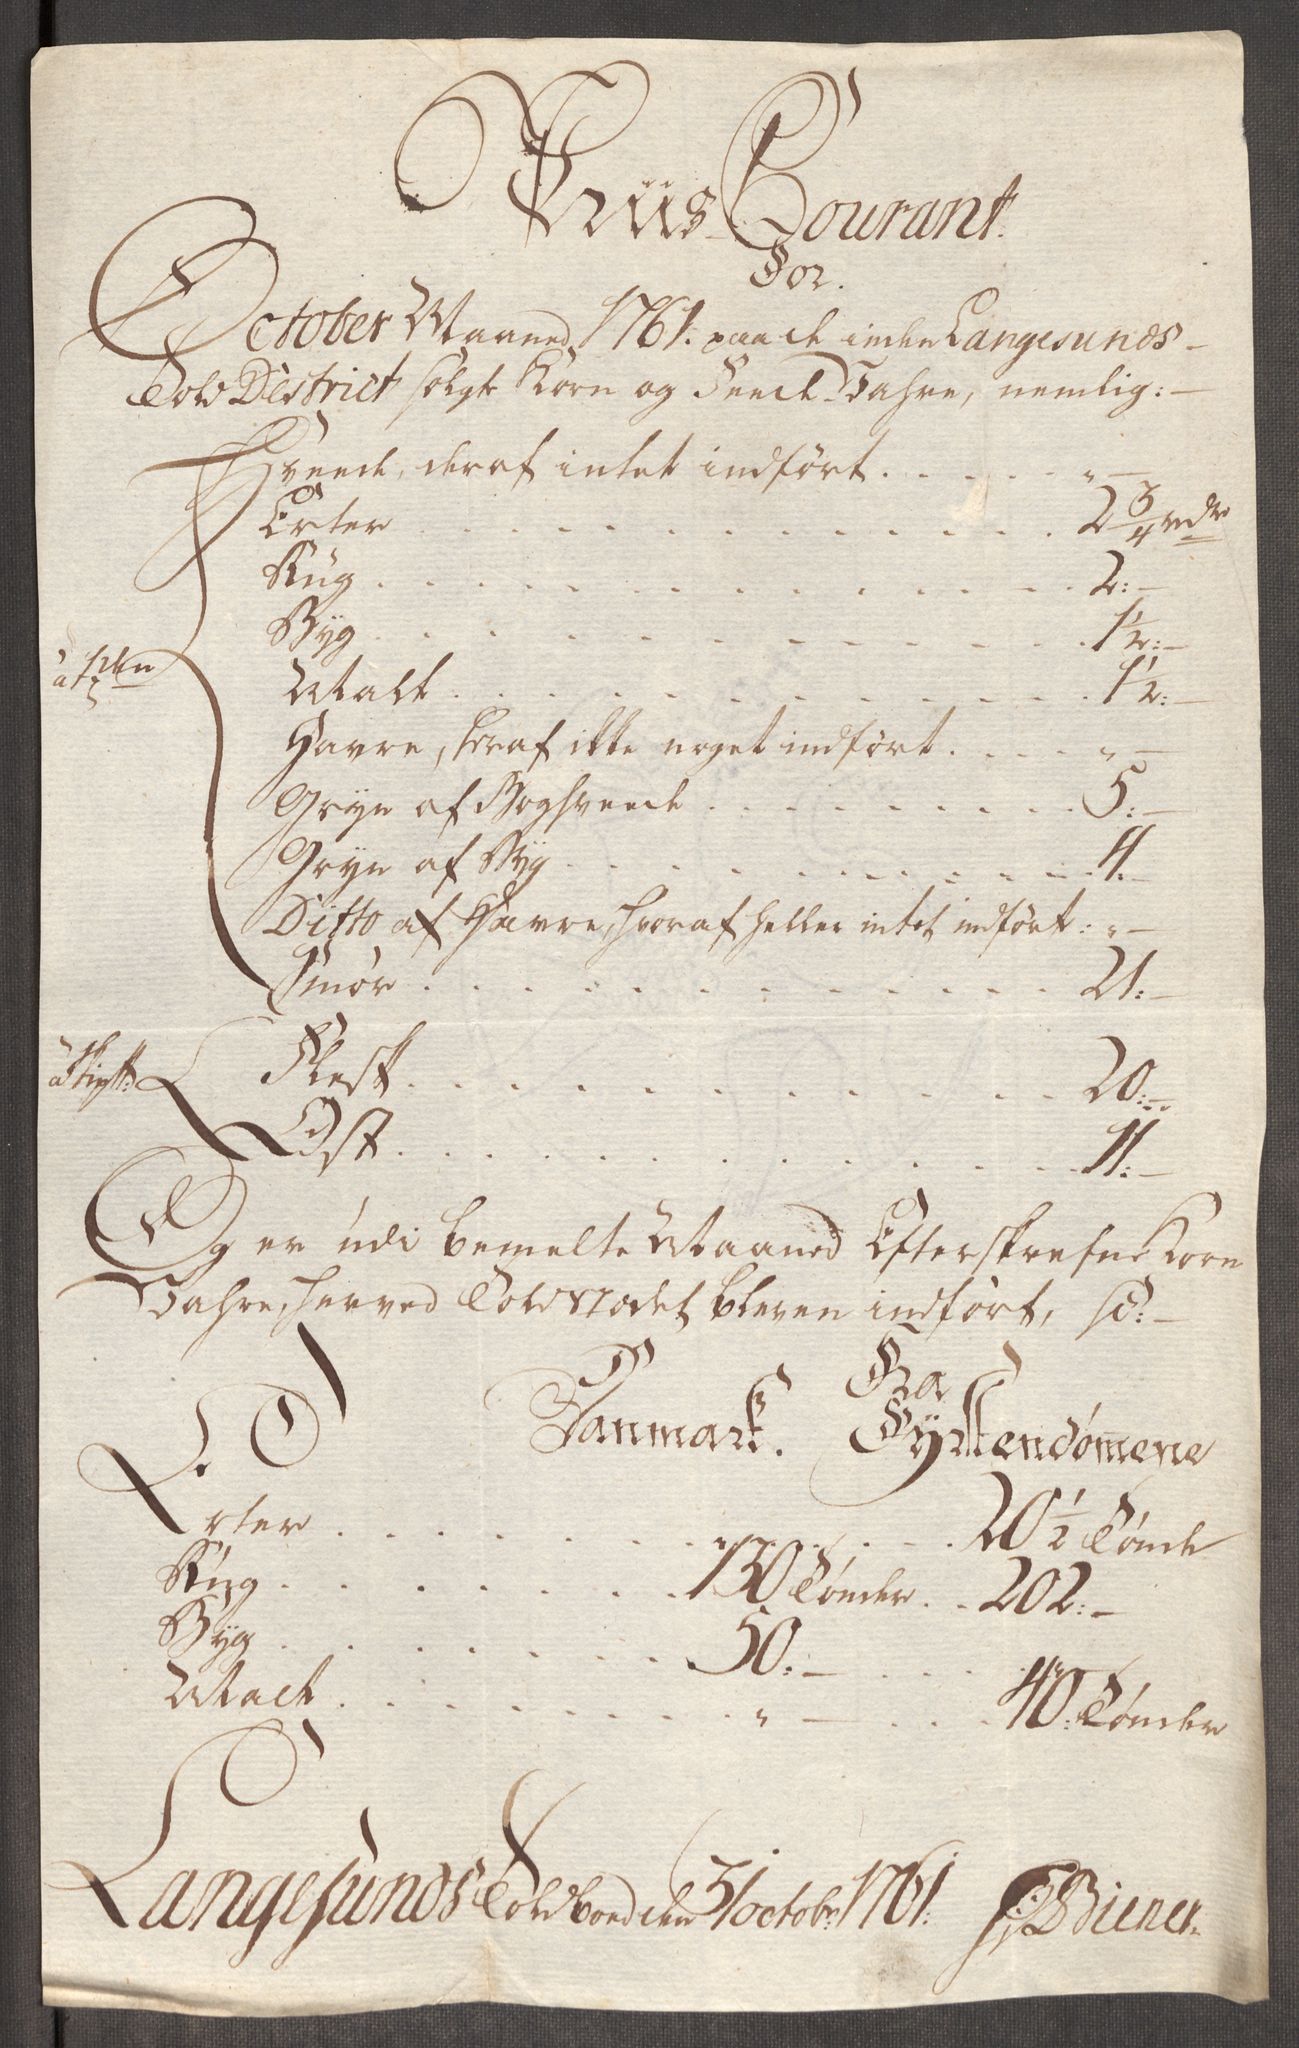 Priis Courant.
For.
October Maaned 1761. paa de inden Langesunds
Told District solgte Korn og Feede Vahre, nemlig:
Hveede, deraf intet indført . . . . „
Erter . . . 2 3/4 rdr
Rug . . . 2:
Byg . . . 1 1/2:
à Tde
Malt . . . 1 1/2:
Havre, horaf ikke noget indført . . . „
Gryn af Boghveede . . . 5:
Gryn af Byg . . . 4:
Ditto af Havre, hvoraf heller intet indført: „
Smør . . . 21:
à Skip℔:
Flesk . . . 20:
Ost . . . 11:
Og er udi bemelte Maaned Efterskrefne Korn
Vahre, herved Toldstædet bleven indført, s:
Fra
Danmark. Fyrstendømene
Erter . . . „ . . . 20 1/2 Tønde
Rug . . . 130 Tønder . . 202:
Byg . . . 50: . . . „
Malt . . . „ . . . 40: Tønder
Langesunds Toldboed den 31 octobr: 1761. Biener